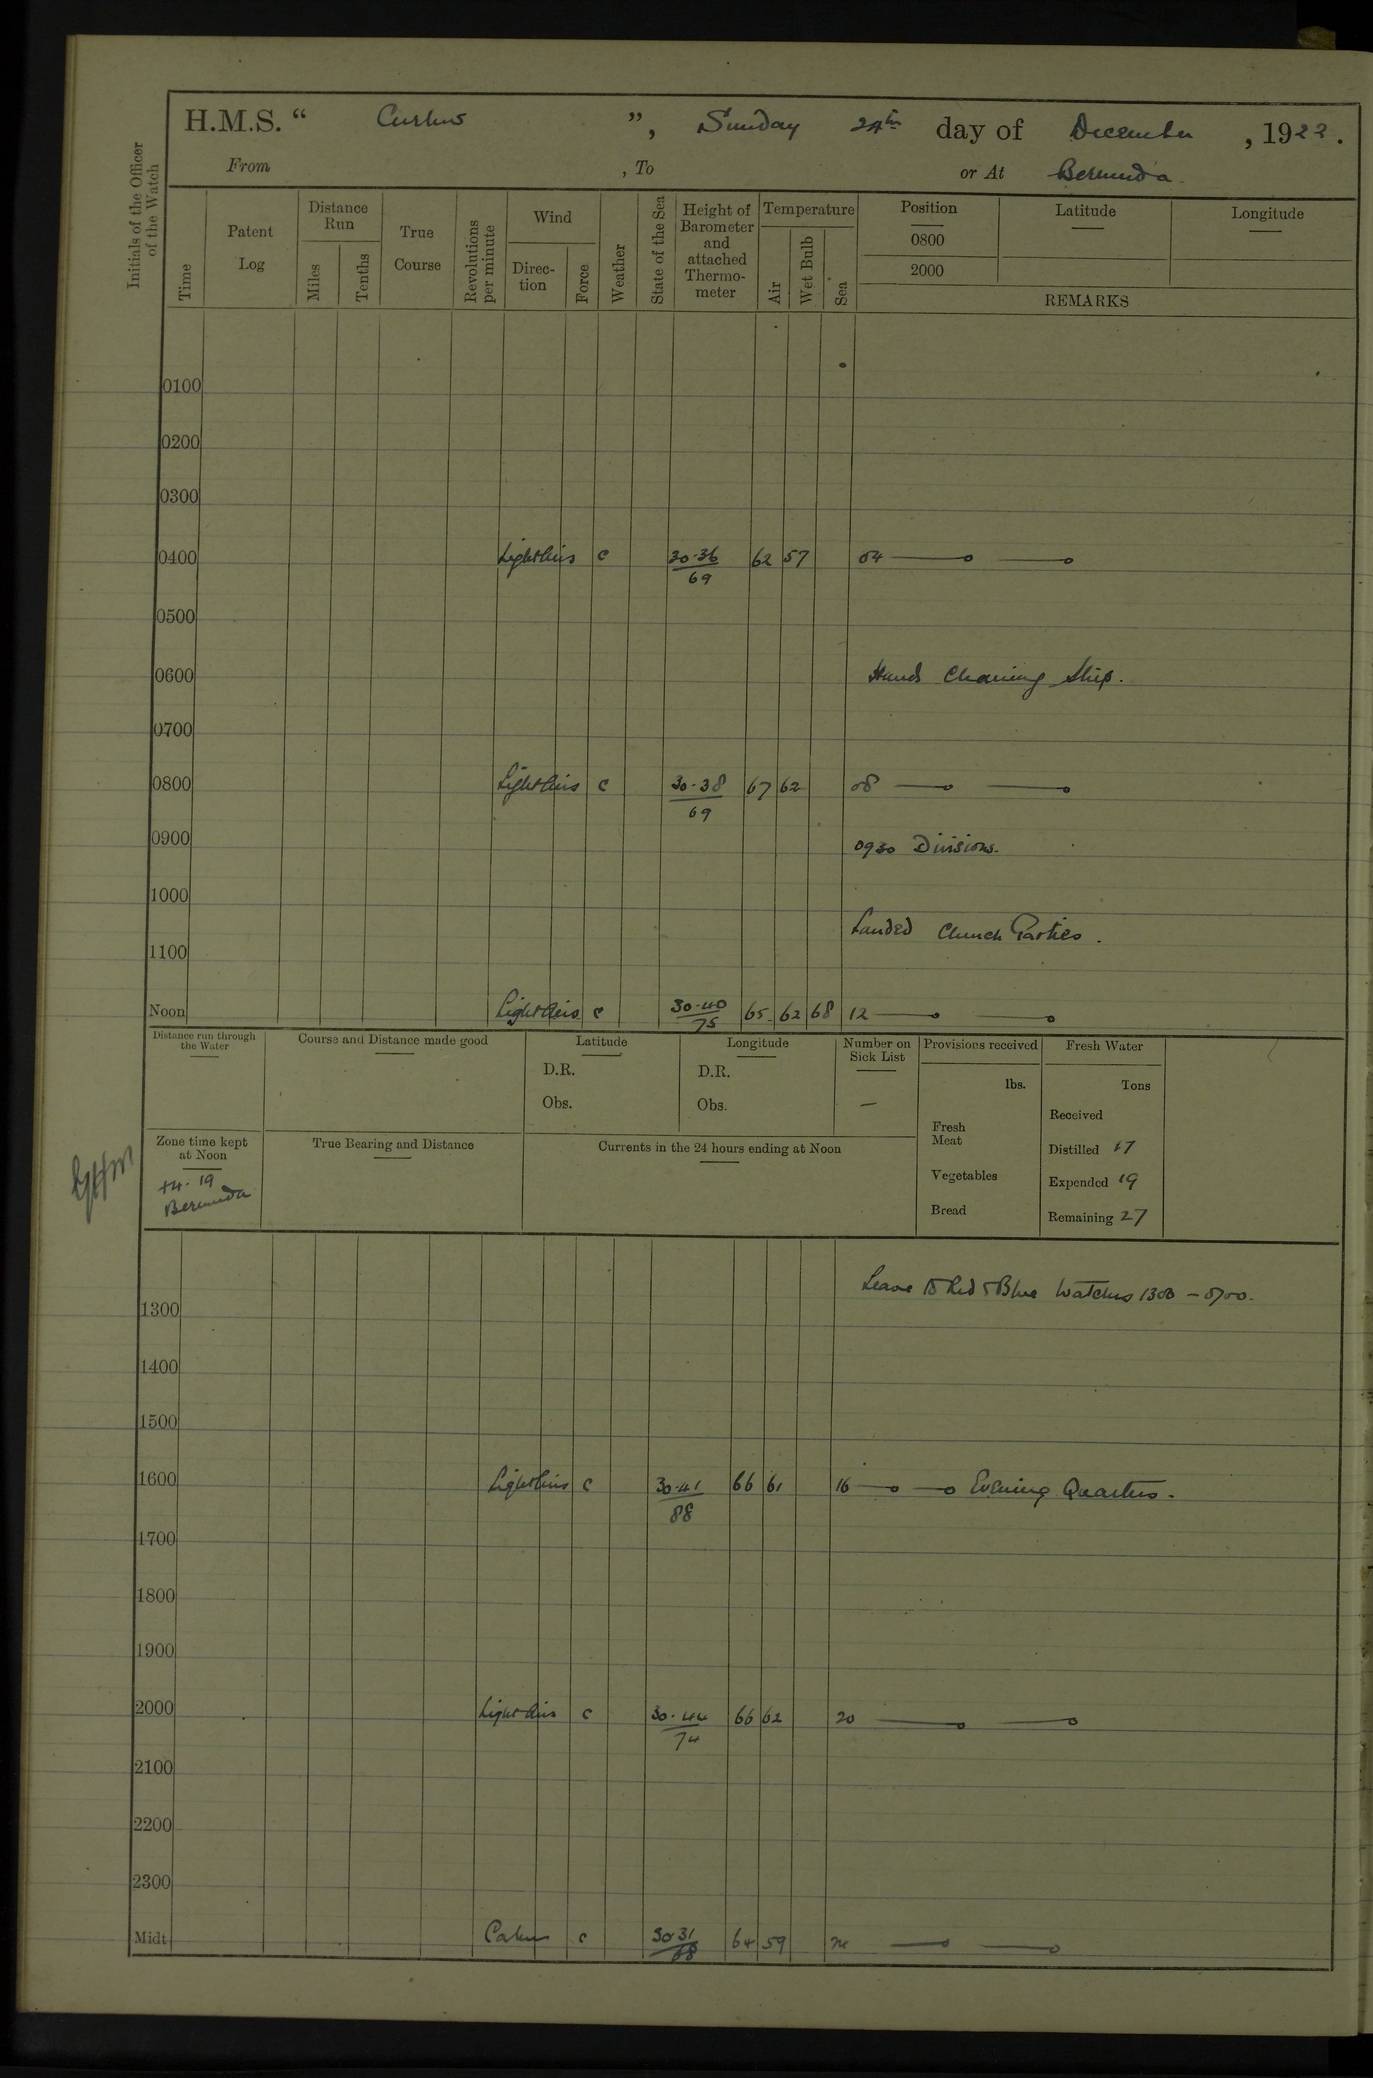 H.M.S. “ Curlew ”, Sunday 24th day of December, 1922.
From , To or At Bermuda.
Initials of the Officer of the Watch
Time
Patent Log
Distance Run
Miles
Tenths
True Course
Revolutions per minute
Wind
Direc-tion
Force
Weather
State of the Sea
Height of Barometer and attached Thermo-meter
Temperature
Air
Wet Bulb
Sea
Position
0800
2000
Latitude
Longitude
REMARKS
0100
0200
0300
0400 Light Airs c 30.36/69 62 57 04
0500
0600 Hands Cleaning Ship.
0700
0800 Light Airs c 30.38/69 67 62 08
0900 0930 Divisions.
1000
Landed Church Parties.
1100
Noon Light Airs c 30.40/75 65 62 68 12
Distance run through the Water
Course and Distance made good
Latitude
D.R.
Obs.
Longitude
D.R.
Obs.
Number on Sick List
—
Provisions received
lbs.
Fresh Meat
Vegetables
Bread
Fresh Water
Tons
Received
Distilled 17
Expended 19
Remaining 27
Zone time kept at Noon
+4.19
Bermuda
True Bearing and Distance
Currents in the 24 hours ending at Noon
Leave to Red & Blue Watches 1300 – 0700.
1300
1400
1500
1600 Light Airs c 30.41/88 66 61 16 Evening Quarters.
1700
1800
1900
2000 Light Airs c 30.44/74 66 62 20
2100
2200
2300
Midt. Calm c 30 31/68 64 59 24